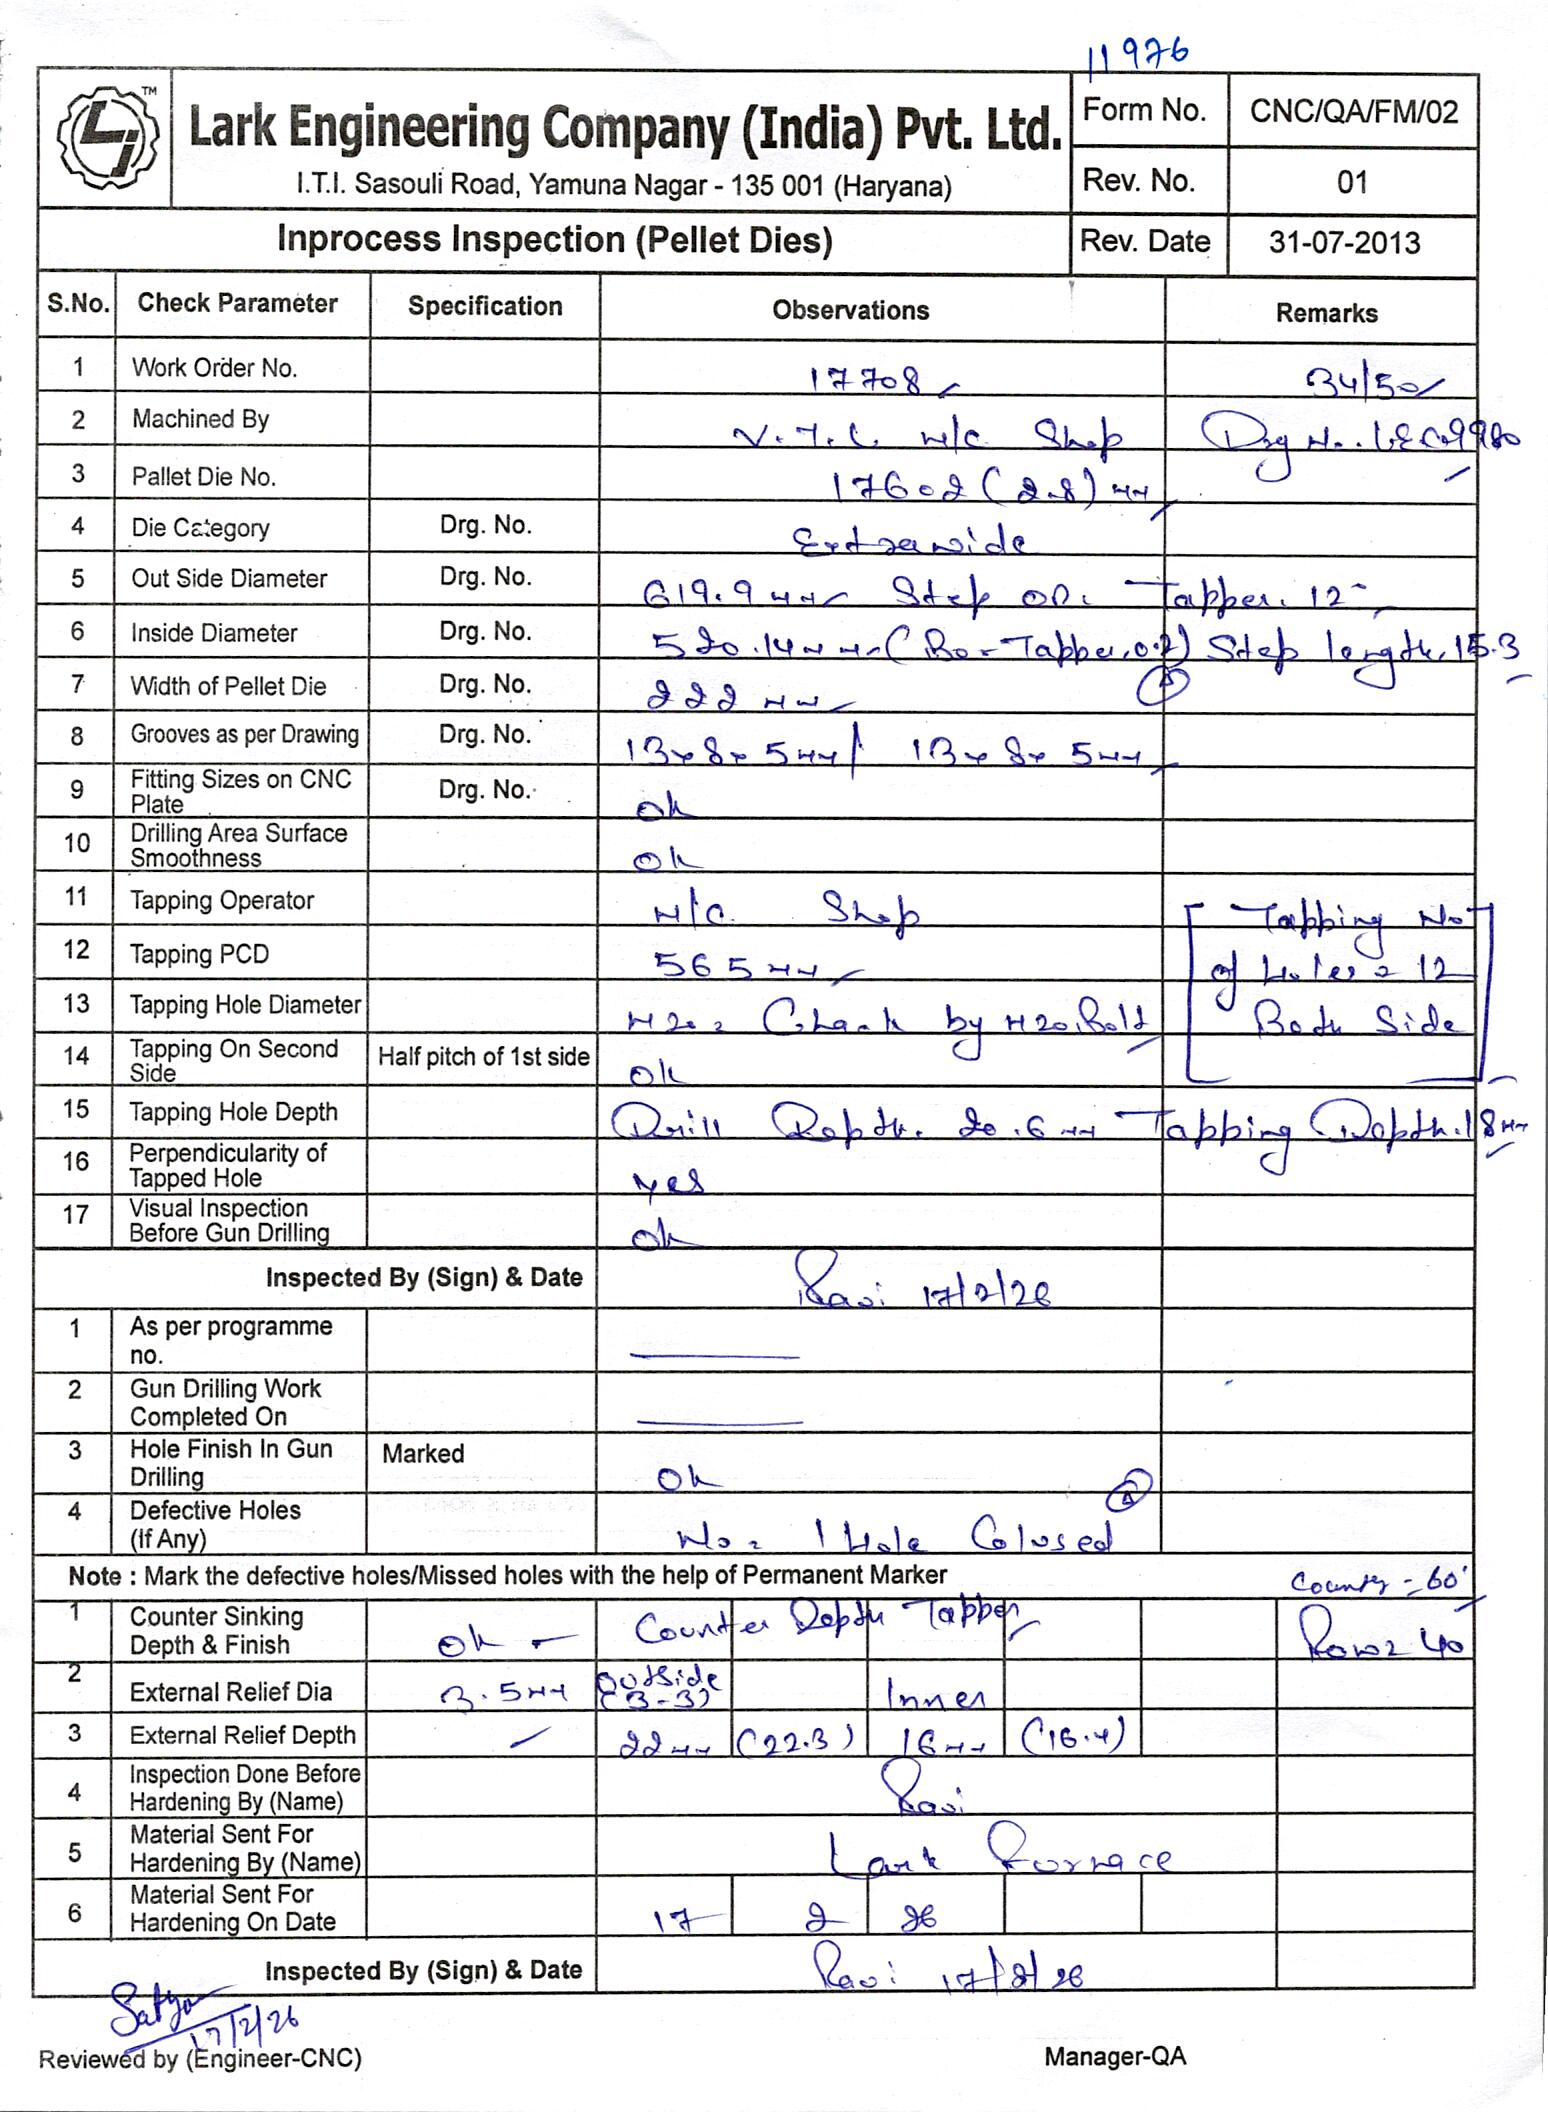 11976
TM
Lark Engineering Company (India) Pvt. Ltd.
I.T.I. Sasouli Road, Yamuna Nagar - 135 001 (Haryana)
Form No. CNC/QA/FM/02
Rev. No. 01
Inprocess Inspection (Pellet Dies) Rev. Date 31-07-2013
S.No. Check Parameter Specification Observations Remarks
1 Work Order No. 17708 34/50
2 Machined By V.T.L. M/C Shop Drg No. LEC-9980
3 Pallet Die No. 17602 (2.8) mm
4 Die Category Drg. No. Extrawide
5 Out Side Diameter Drg. No. 619.9 mm Step OD. Tapper. 12
6 Inside Diameter Drg. No. 520.14 mm (Bo-Tapper, 0.2) Step length, 15.3
7 Width of Pellet Die Drg. No. 222 mm
8 Grooves as per Drawing Drg. No. 13x8x5mm / 13x8x5mm
9 Fitting Sizes on CNC Plate Drg. No. Ok
10 Drilling Area Surface Smoothness Ok
11 Tapping Operator M/C Shop Tapping No
12 Tapping PCD 565 mm of Holes = 12
13 Tapping Hole Diameter M20 = Chack by M20 Bolt Both Side
14 Tapping On Second Side Half pitch of 1st side Ok
15 Tapping Hole Depth Drill Depth. 20.6 mm Tapping Depth. 18mm
16 Perpendicularity of Tapped Hole Yes
17 Visual Inspection Before Gun Drilling Ok
Inspected By (Sign) & Date Ravi 17/2/26
1 As per programme no.
2 Gun Drilling Work Completed On
3 Hole Finish In Gun Drilling Marked Ok
4 Defective Holes (If Any) No = 1 Hole Colused
Note : Mark the defective holes/Missed holes with the help of Permanent Marker Counter - 60°
1 Counter Sinking Depth & Finish Ok Counter Depth Tapper Row = 40
2 External Relief Dia 3.5mm Outside (3-3) Inner
3 External Relief Depth 22mm (22.3) 16mm (16.4)
4 Inspection Done Before Hardening By (Name) Ravi
5 Material Sent For Hardening By (Name) Lark Furnace
6 Material Sent For Hardening On Date 17 2 26
Inspected By (Sign) & Date Ravi 17/2/26
Satya
17/2/26
Reviewed by (Engineer-CNC) Manager-QA